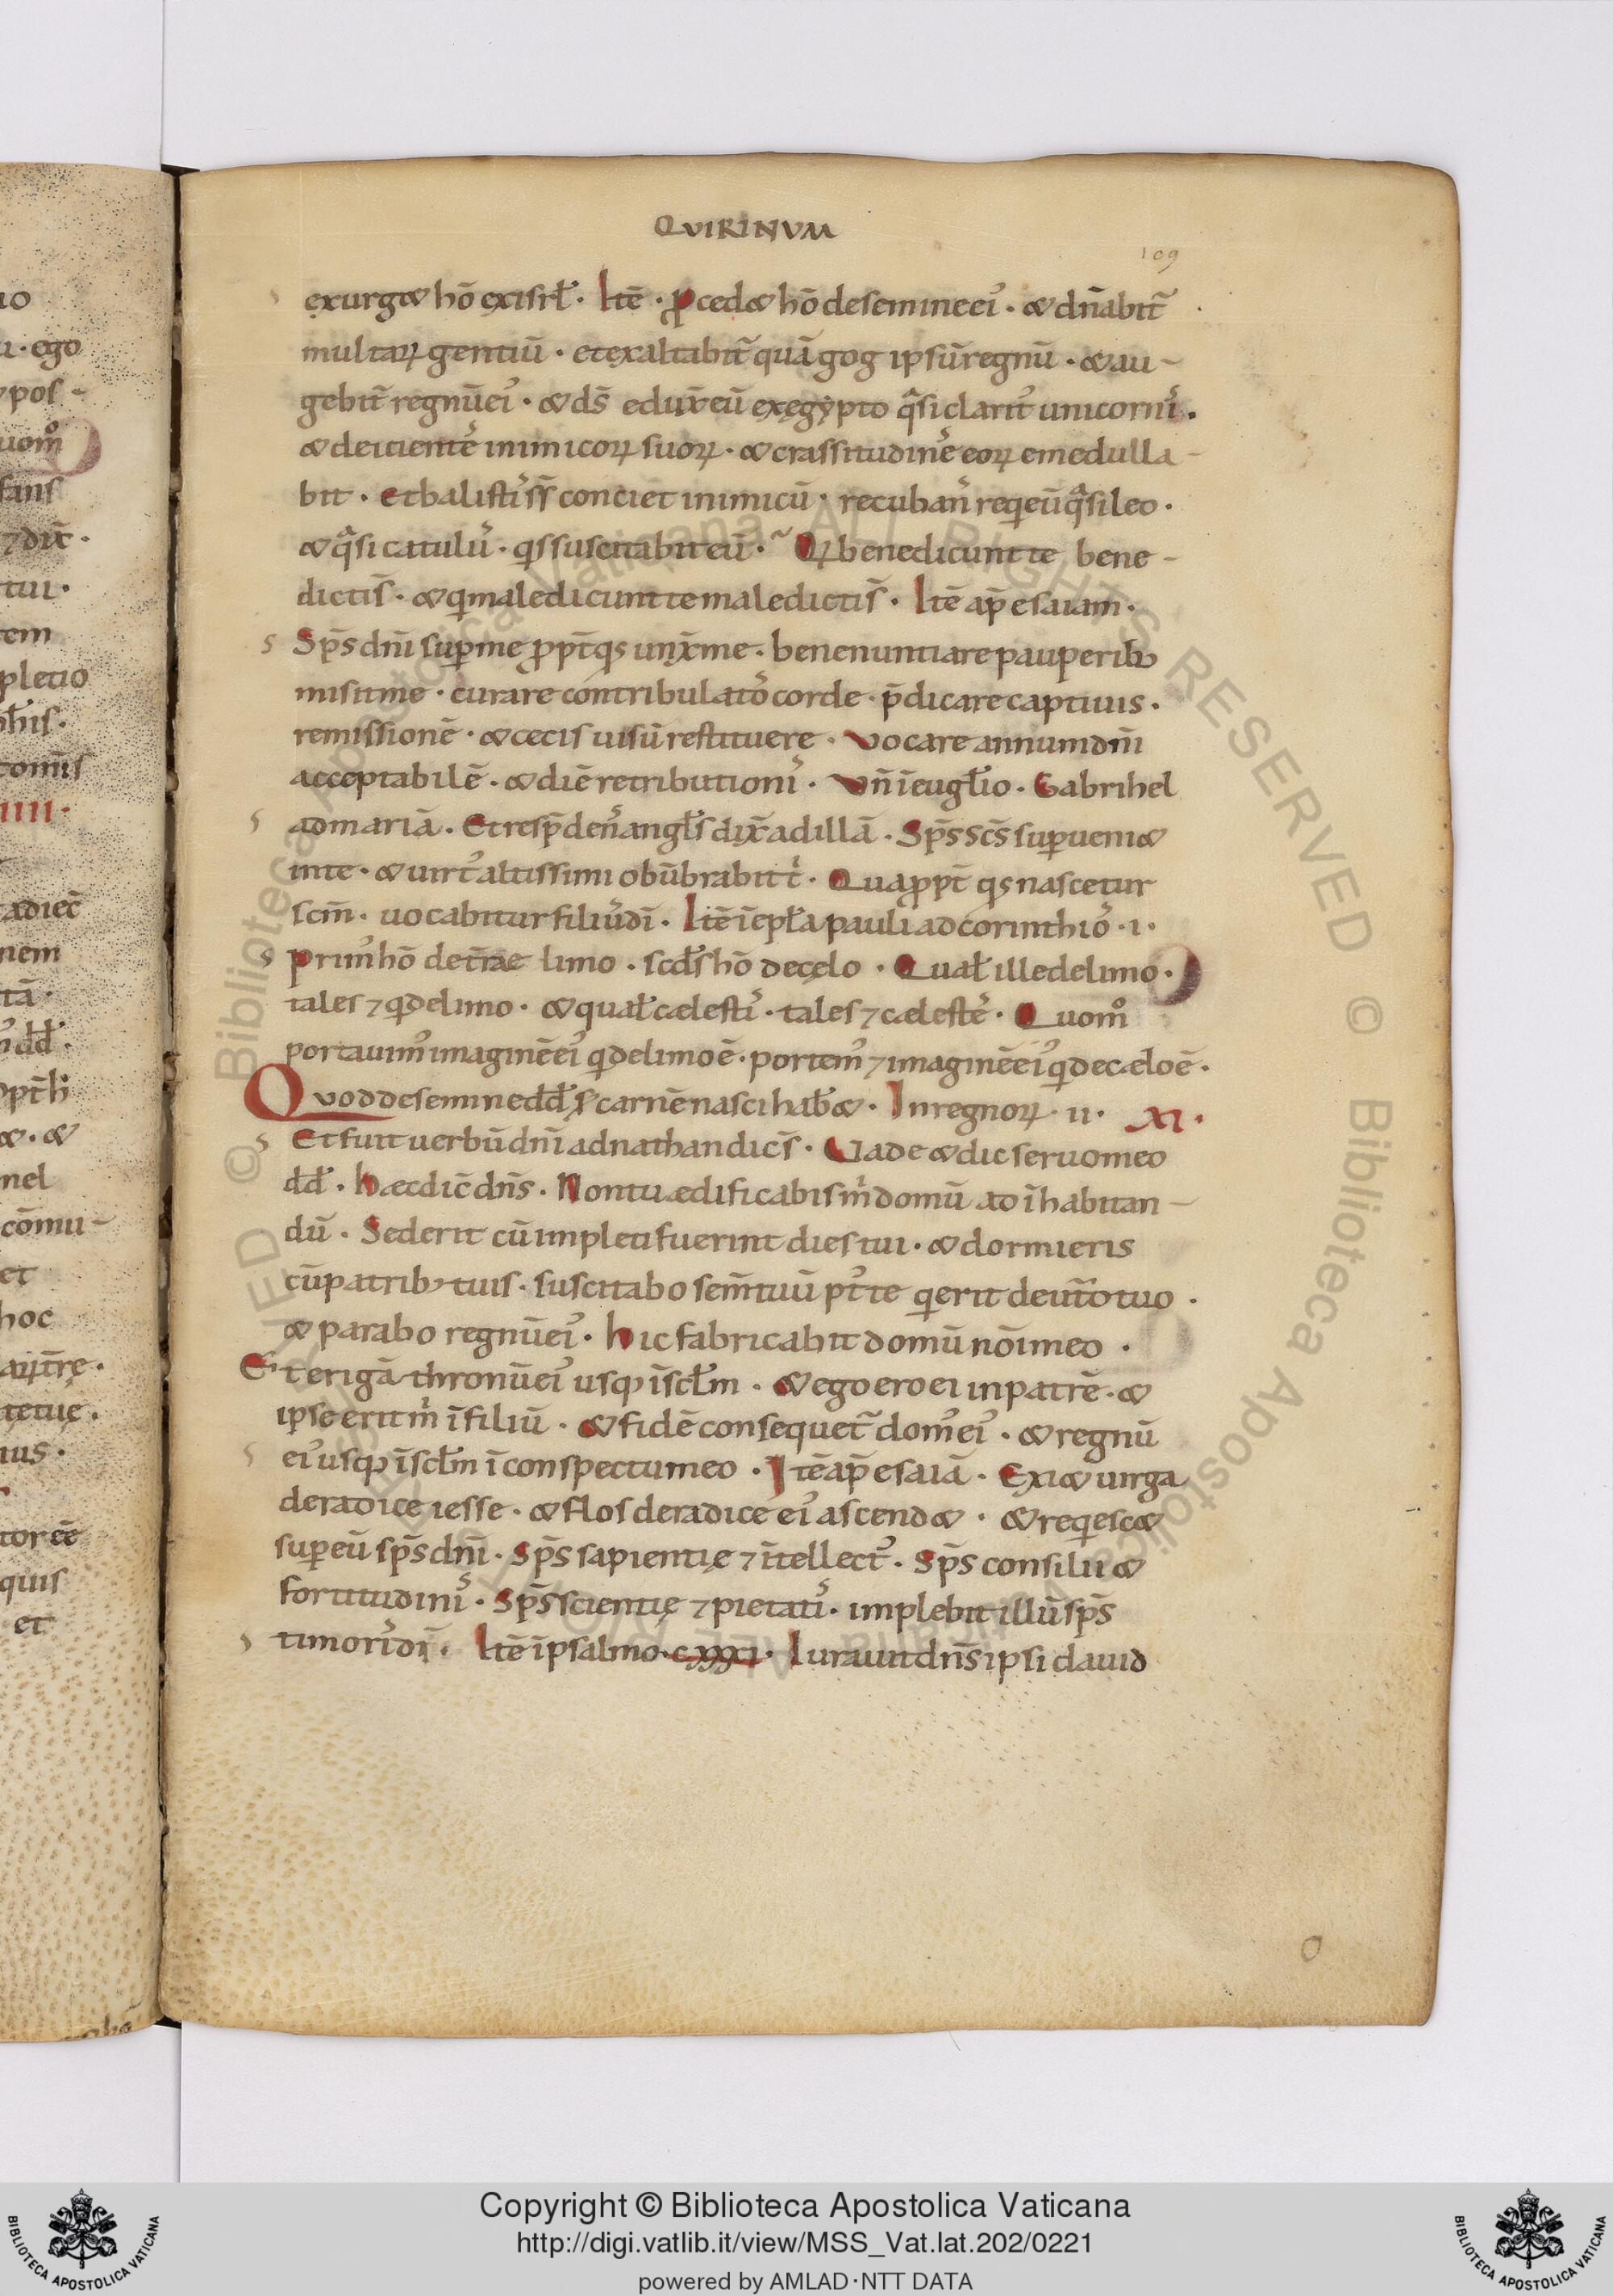 QVIRINVM
109
exurgæ hō exisrł. Itē. ꝓcedæ hō de semine eiꝰ. & dn̄abit̃
multaꝝ gentiū. et exaltabit̃ quā gog ipsū regnū. & au-
gebit̃ regnū eiꝰ. & ds̄ edux̄ eū ex egypto q̃si clarit' unicornis.
& deicientē inimicoꝝ suoꝝ. & crassitudinē eoꝝ emedulla-
bit. Et balistis s̄s̄ conciet inimicū. recubans̃ reqeū q̃si leo.
& q̃si catulus. qs suscitabit eū. Q benedicunt te bene-
dictis̄. & q maledicunt te maledictis̄. Itē ap̄ esaiam.
Sp̄s dn̄i suꝑ me ꝓpt̄ qs unx̄ me. bene nuntiare pauperibꝰ
misit me. curare contribulatos corde. p̄dicare captiuis.
remissionē. & cecis uisū restituere. Vocare annum dn̄i
acceptabilē. & diē retributionis. Vn̄ ī eugłio. Gabrihel
ad mariā. Et resp̄dens angłs dix̄ ad illā. Sp̄s sc̄s suꝑueniæ
in te. & uirtꝰ altissimi obūbrabit t̄. Quaꝓpt̄ qs nascetur
scm̄. uocabitur filius dī. Itē ī epła pauli ad corinthios. i.
Primꝰ hō de t̄rae limo. scd̄s hō de cęlo. Quał ille de limo.
tales ⁊ q de limo. & quał cælestis. tales ⁊ cælestes. Quom̊
portauimꝰ imaginē eiꝰ q de limo ē. portemꝰ ⁊ imaginē eiꝰ q de cælo ē.
Quod de semine dd̄ s̄ carnē nasci hab&. In regnoꝝ. ii. XI.
Et fuit uerbū dn̄i ad nathan dics̄. Uade & dic seruo meo
dd̄. Hæc dic̄ dn̄s. Non tu ædificabis m̄ domū ad īhabitan-
dū. Sed erit cū impleti fuerint dies tui. & dormieris
cū patribꝰ tuis. suscitabo sem̄ tuū pꝰ te q erit de uen̄t̄o tuo.
& parabo regnū eiꝰ. Hic fabricabit domū nōi meo.
Et erigā thronū eiꝰ usqꝫ ī scłm. & ego ero ei in patrē. &
ipse erit m̄ ī filiū. & fidē consequet̃ domꝰ eiꝰ. & regnū
eiꝰ usqꝫ ī scłm ī conspectu meo. Itē ap̄ esaiā. Exiæ uirga
de radice iesse. & flos de radice eiꝰ ascend&. & reqesc&
suꝑ eū sp̄s dn̄i. Sp̄s sapientię ⁊ ītellectꝰ. Sp̄s consilii &
fortitudinis. Sp̄s scientię ⁊ pietatis. implebit illū sp̄s
timoris dī. Itē ī psalmo. cxxxi. Iurauit dn̄s ipsi dauid
Copyright © Biblioteca Apostolica Vaticana
http://digi.vatlib.it/view/MSS_Vat.lat.202/0221
powered by AMLAD·NTT DATA